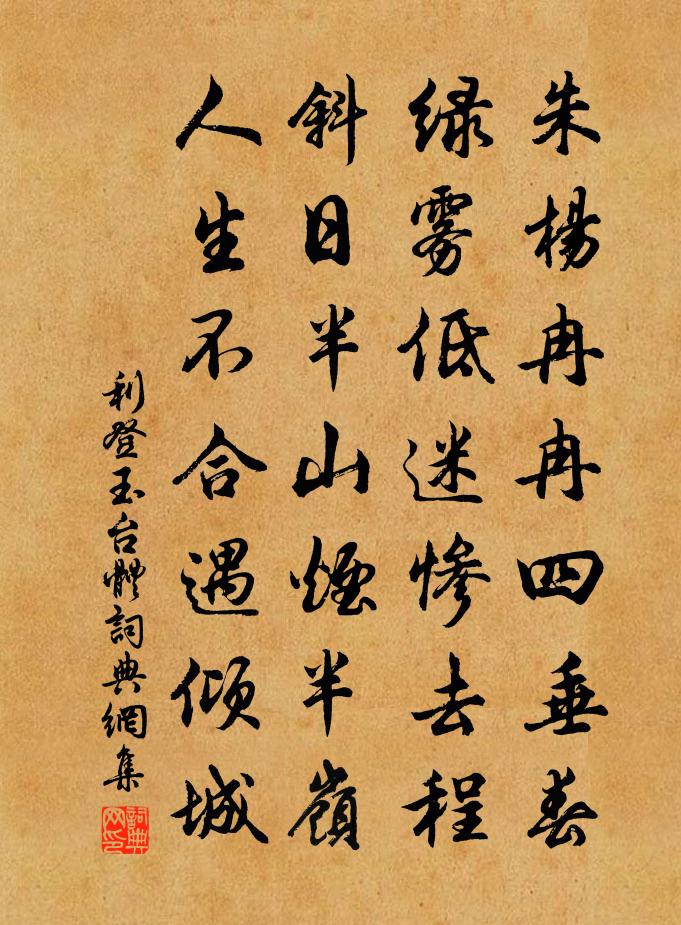 朱楊冉冉四垂春
绿雾低迷惨去程
斜日半山煙半嶺
人生不合遇倾城
利登玉台體詞典網集
詞典网印